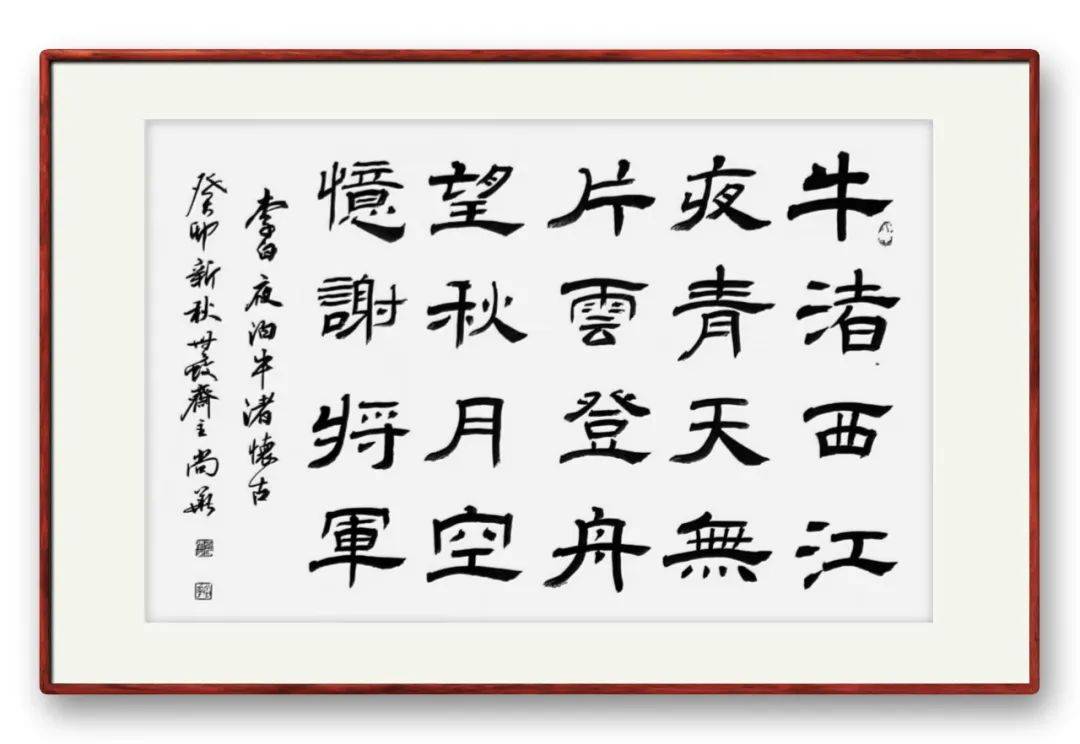 牛渚西江
夜青天無
片雲登舟
望秋月空
憶謝將軍
李白夜泊牛渚懷古
癸卯新秋 齋主尚